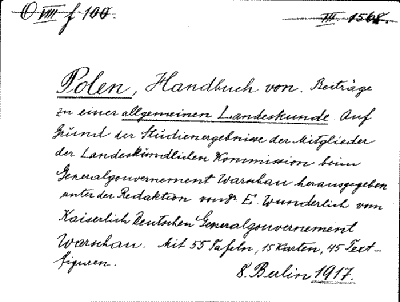 O VIII f 100. III. 1568.
Polen, Handbuch von. Beiträge
zu einer allgemeinen Landeskunde Auf
Grund der Studienergebnisse der Mitglieder
der Landeskundlichen Kommission beim
Generalgouvernement Warschau herausgegeben
unter der Redaktion von E. Wunderlich vom
Kaiserlich Deutschen Generalgouvernement
Warschau. Mit 55 Tafeln, 15 Karten, 45 Text-
figuren.
8. Berlin 1917.